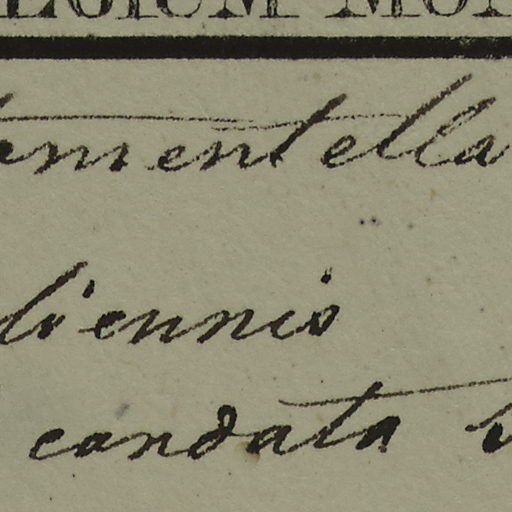 EGIUM MON
amentella
liennis
candata